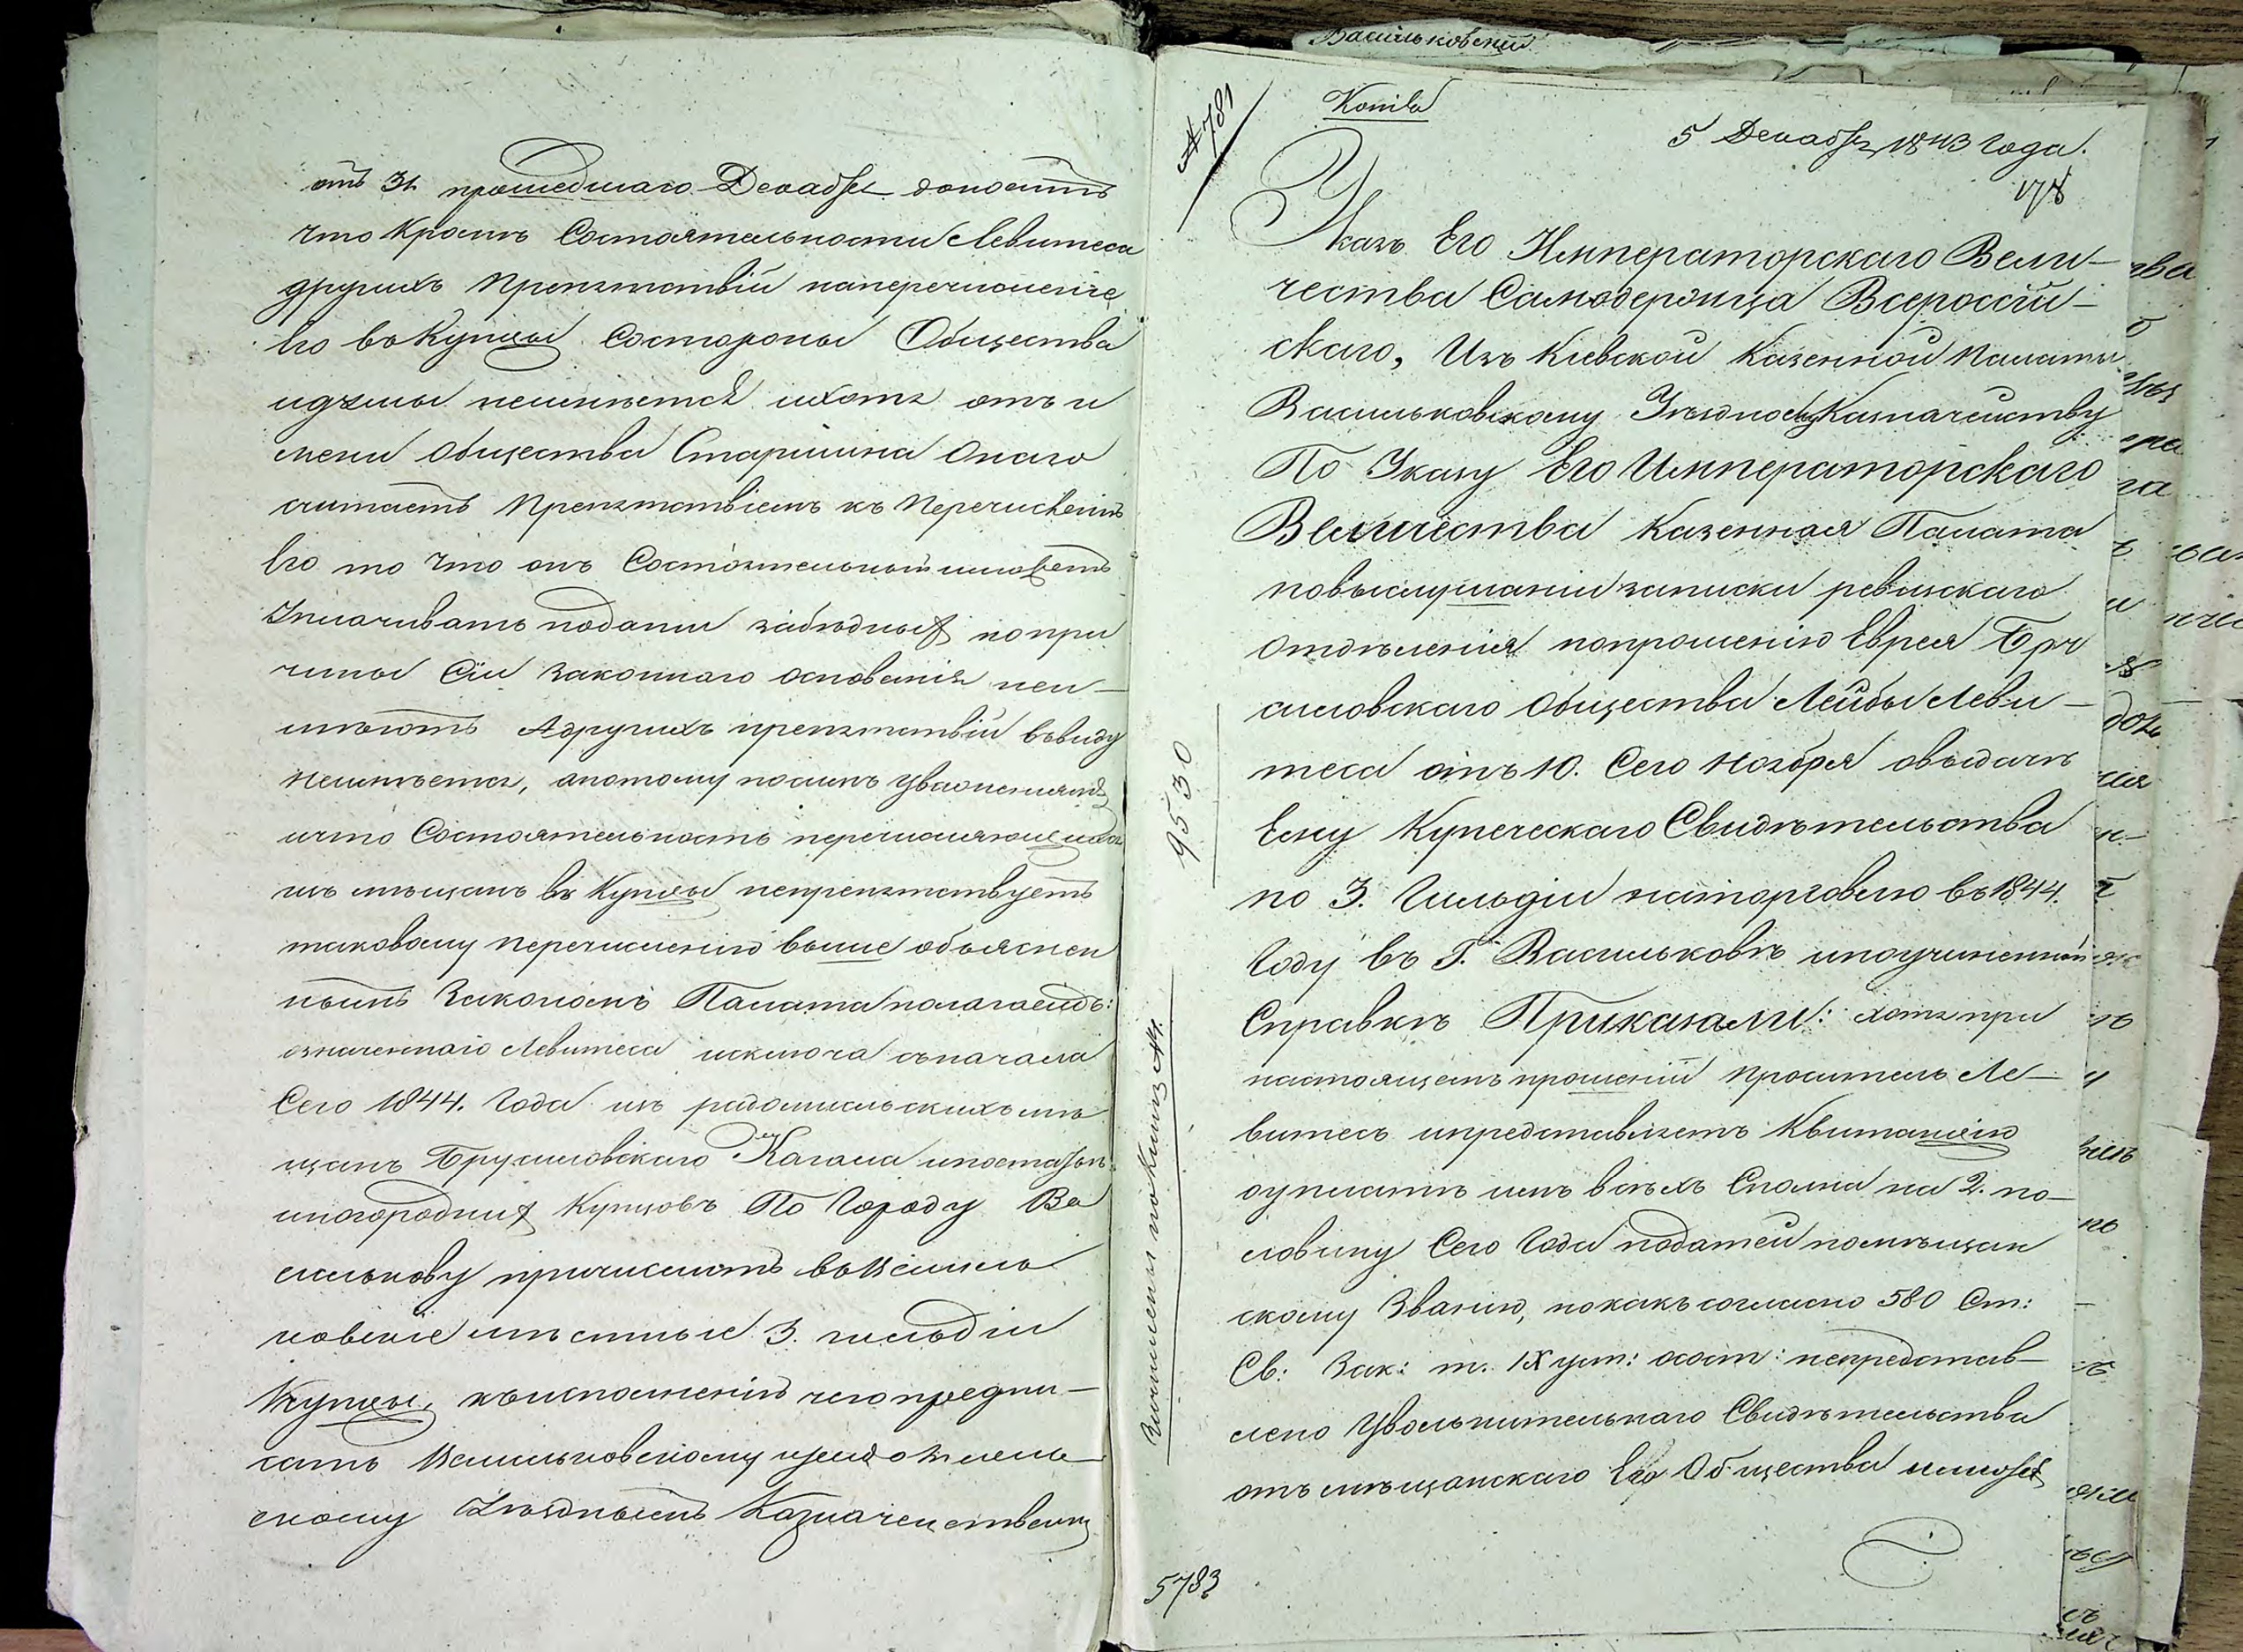 отъ 31. прошедшаго Декабря доноситъ
что кромѣ Состоятельности Левитеса
другихъ препятствій наперечисленіе
Его въ Купцы состороны Общества
неимѣется ихотя отъ и
мени Общества Старшина онаго
считаетъ препятствіемъ къ перечисленію
Его то что онъ Состоятельный иможетъ
Уплачивать подати забѣдныхъ но при
чины Сіи законнаго основанія неи-
мѣютъ Адругихъ препятствій ввиду
неимѣется, апотому посимъ уваженіямъ
ичто Состоятельность перечисляющихся
изъ мѣщанъ въ Купцы непрепятствуетъ
таковому перечисленію выше объяснен
нымъ Закономъ Палата полагаетъ:
означеннаго Левитеса исключа съначала
Сего 1844. Года изъ радомысльскихъ мѣ
щанъ Брусиловскаго Кагала
иногородныхъ Купцовъ По Городу Ва
силькову причислить въ Василь
ковскіе мѣстные 3. гильдіи
Купцы, къисполненію чего предпи-
сать Васильковскому
скому Уѣзднымъ Казначействамъ
Васильковскій
№ 781
Копія
5 Декабря 1843 Года.
178
Указъ Его Императорскаго Вели-
чества Самодержца Всероссій-
скаго, Изъ Кіевской Казенной Палаты
Васильковскому Уѣздному Казначейству
По Указу Его Императорскаго
Величества Казенная Палата
повыслушаніи записки ревизскаго
отдѣленія попрошенію Еврея Бру
силовскаго Общества Лейбы Леви-
теса отъ 10. Сего Ноября овыдачѣ
Ему Купеческаго Свидѣтельства
по 3. Гильдіи наторговлю въ 1844.
Году въ Г. Васильковѣ ипоучиненной
Справкѣ Приказали: хотя при
настоящемъ прошеніи проситель Ле-
витесъ ипредставляетъ Квитанцію
оуплатѣ имъ всѣхъ Сполна на 2. по-
ловину Сего Года податей помѣщан
скому Званію, нокакъ согласно 580 Ст:
Св: Зак: т. IX уст: осост: непредстав-
лено Увольнительнаго Свидѣтельства
отъ мѣщанскаго Его Общества
9530
Исполнены по Книгѣ №.
5783